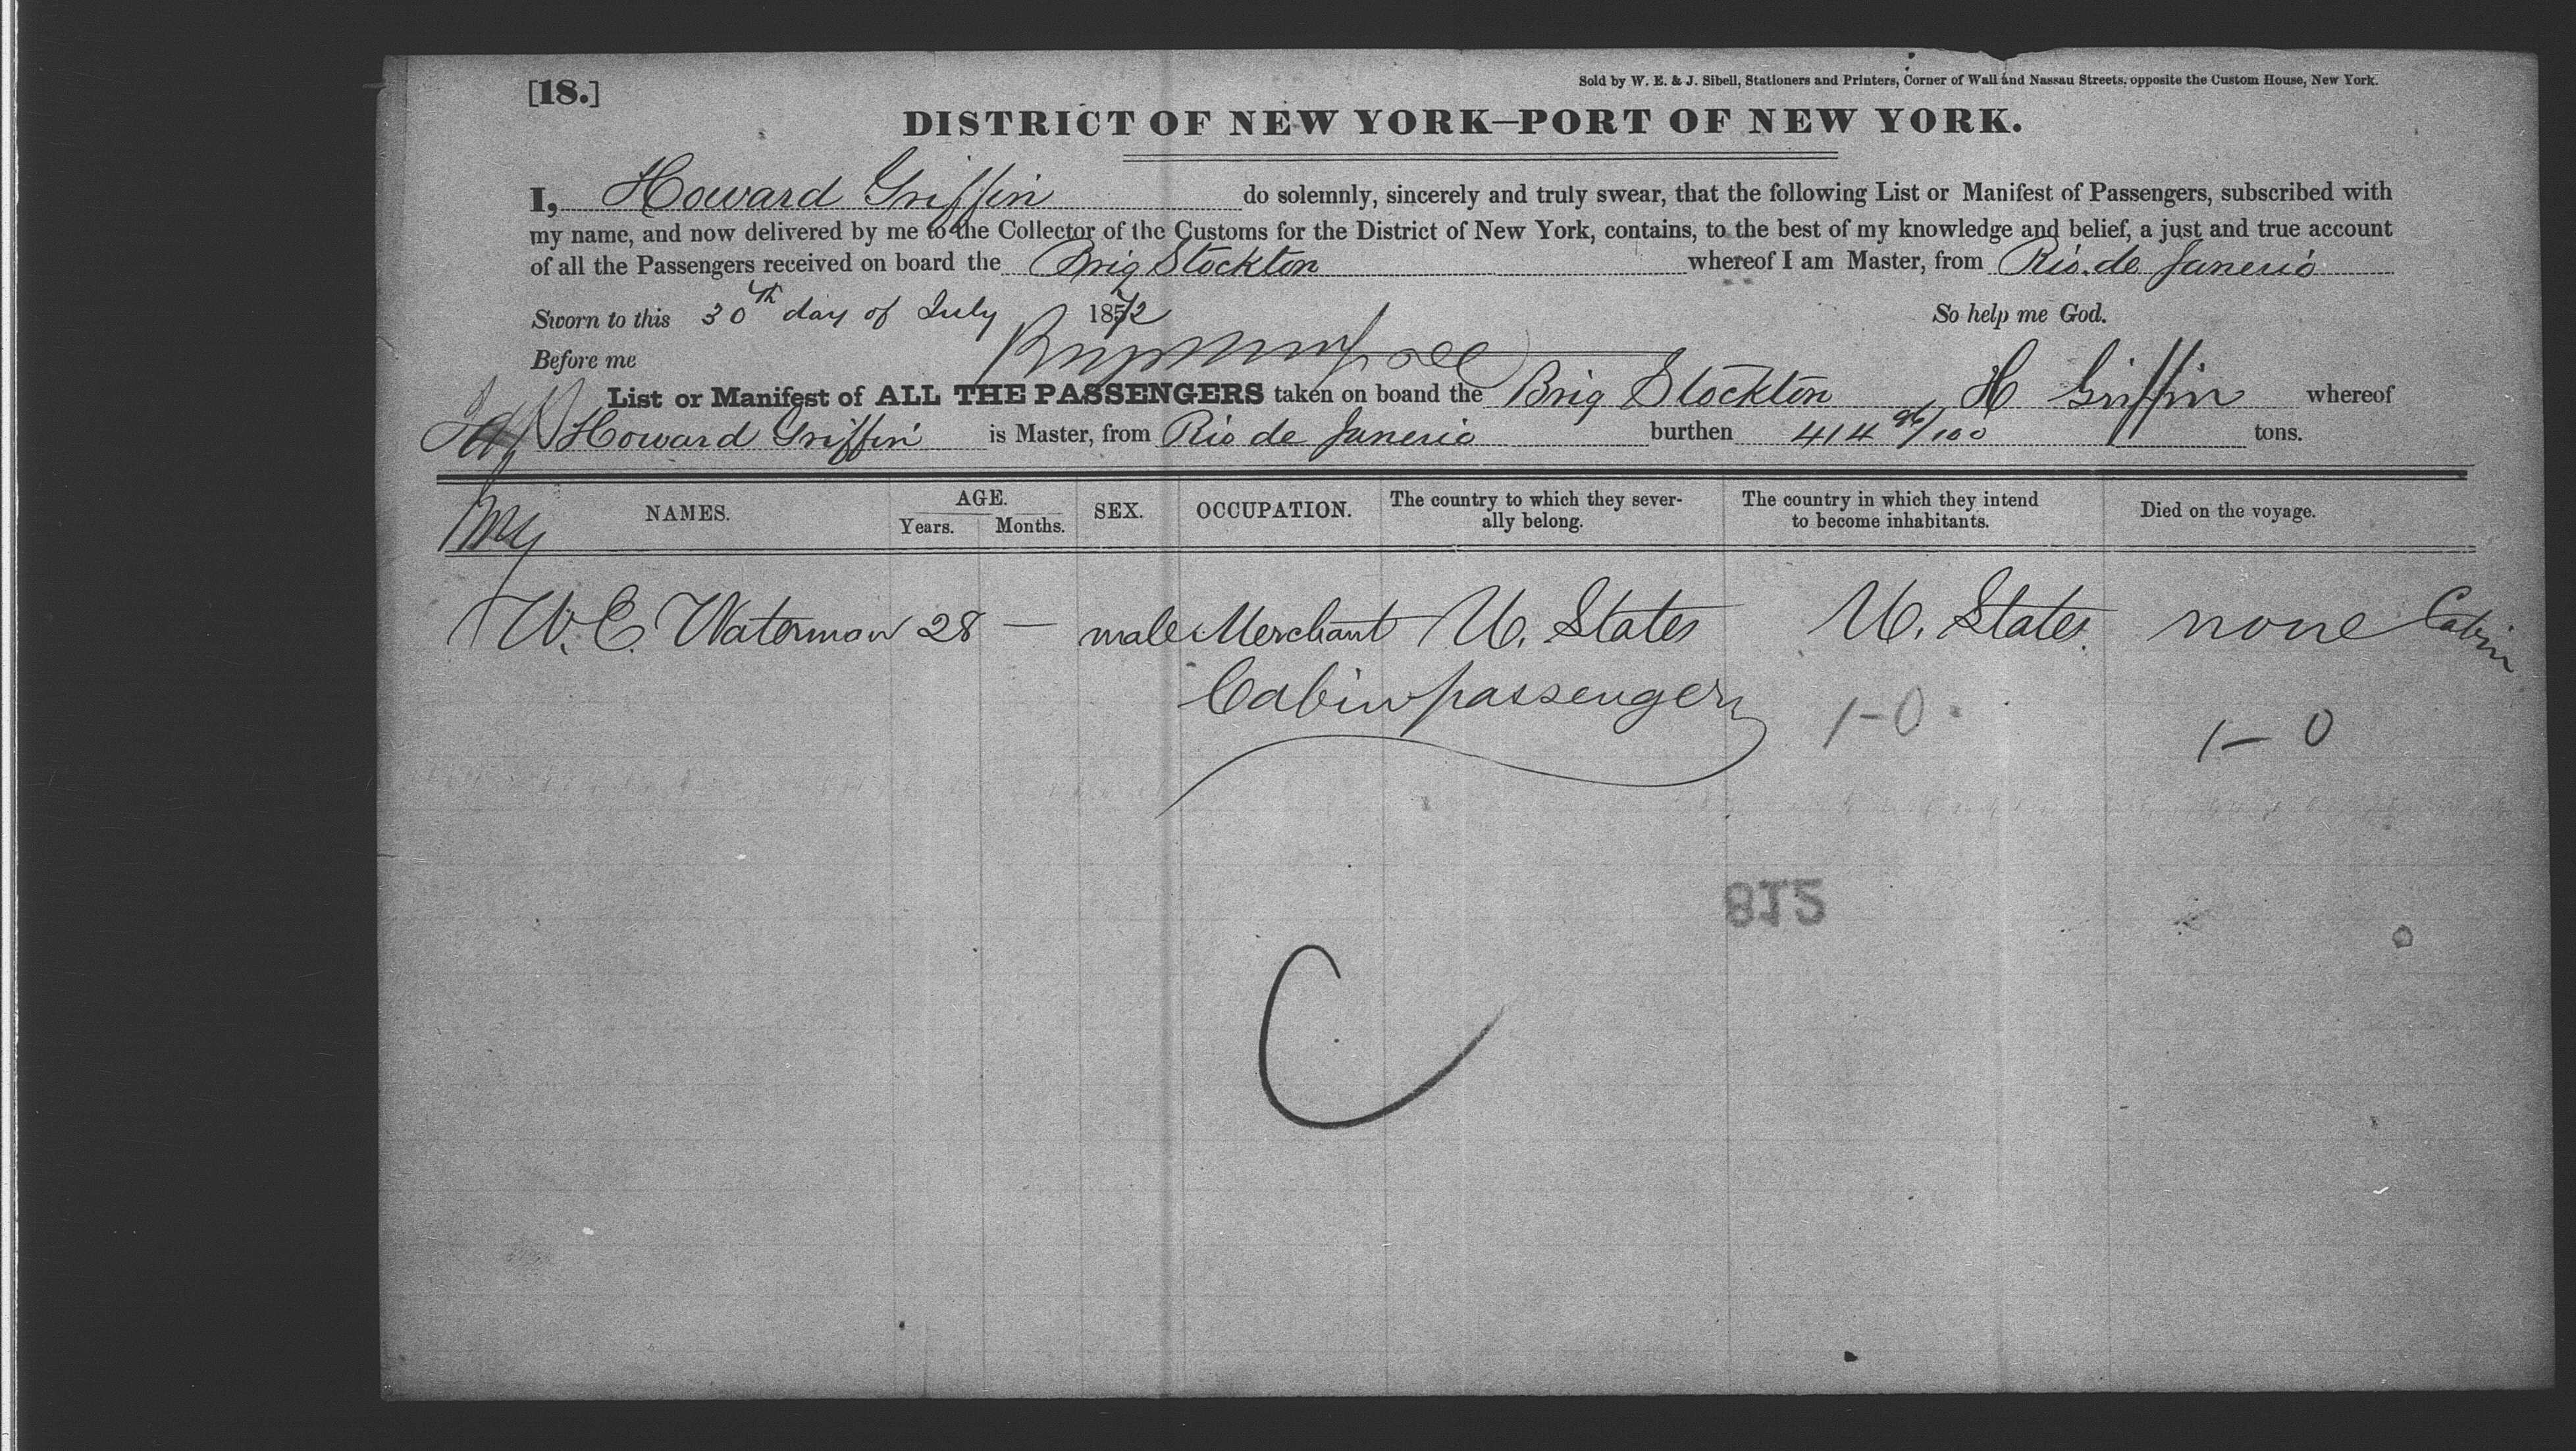 [18.]
Sold by W. E. & J. Sibell, Stationers and Printers, Corner of Wall and Nassau Streets, opposite the Custom House, New York.
DISTRICT OF NEW YORK—PORT OF NEW YORK.
I, Howard Griffin do solemnly, sincerely and truly swear, that the following List or Manifest of Passengers, subscribed with
my name, and now delivered by me to the Collector of the Customs for the District of New York, contains, to the best of my knowledge and belief, a just and true account
of all the Passengers received on board the Brig Stockton whereof I am Master, from Rio de Janerio
Sworn to this 30th day of July 1872 So help me God.
Before me
List or Manifest of ALL THE PASSENGERS taken on boand the Brig Stockton H Griffin whereof
Howard Griffin is Master, from Rio de Janerio burthen 414 96/100 tons.
NAMES. AGE. Years. Months. SEX. OCCUPATION. The country to which they severally belong. The country in which they intend to become inhabitants. Died on the voyage.
W. C. Waterman 28 — male Merchant U. States U. States. none Cabin
Cabin passenger
1-0
1-0
812
C